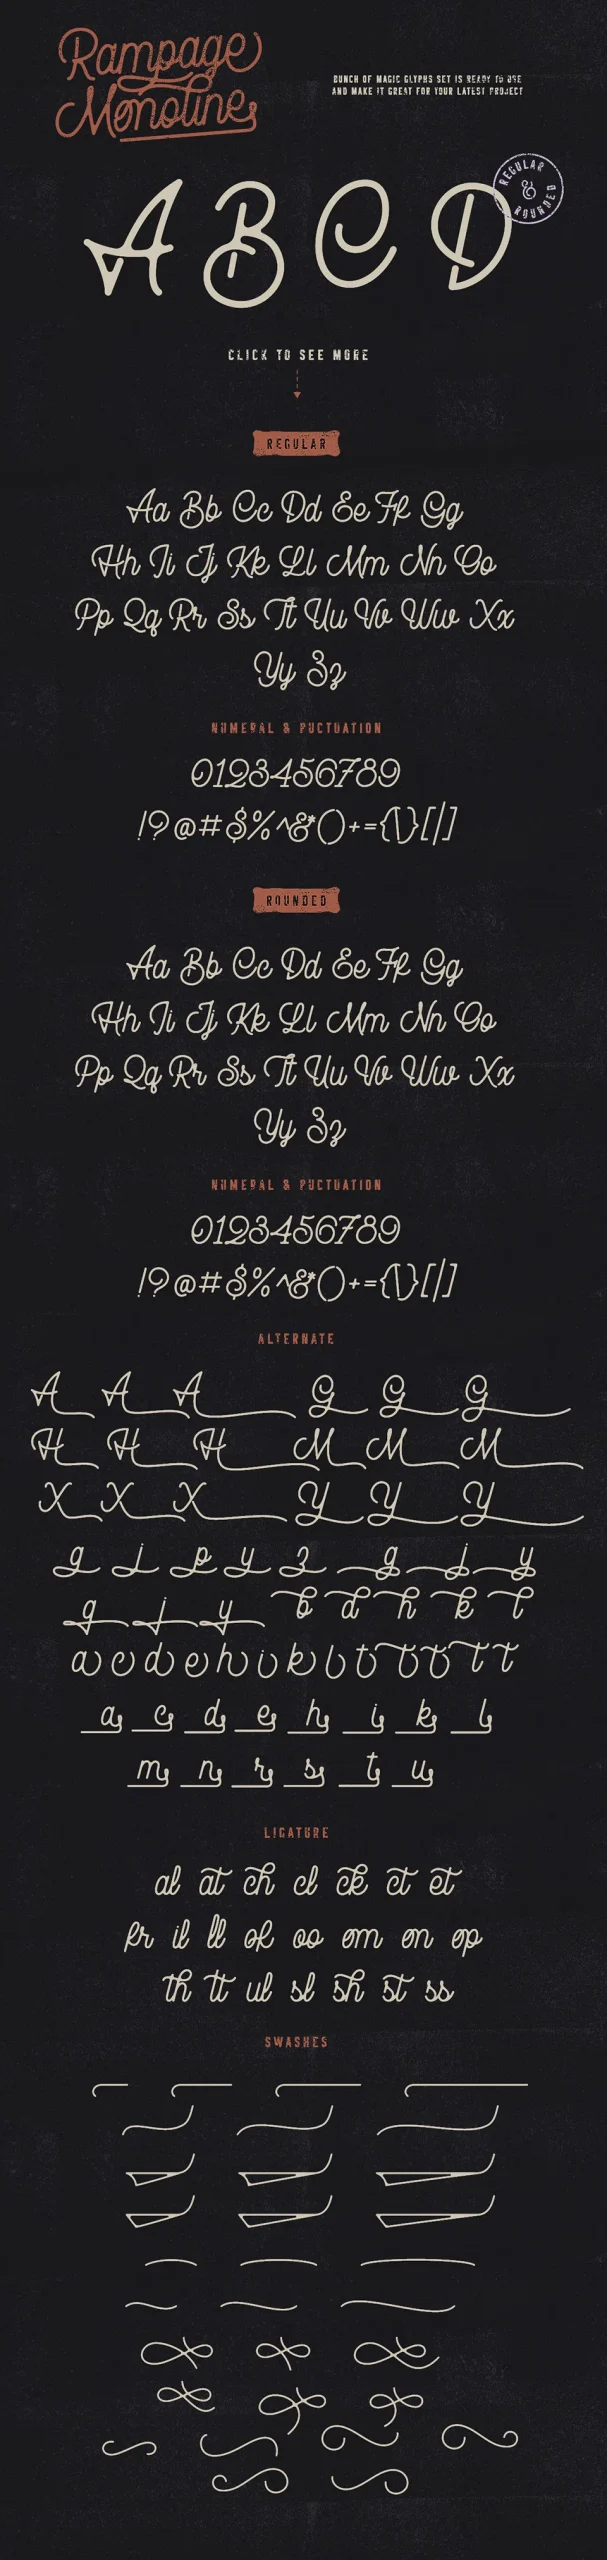 Rampage
Monoline
BUNCH OF MAGIC GLYPHS SET IS READY TO USE
AND MAKE IT GREAT FOR YOUR LATEST PROJECT
REGULAR
&
ROUNDED
A B C D
CLICK TO SEE MORE
REGULAR
Aa Bb Cc Dd Ee Ff Gg
Hh Ii Jj Kk Ll Mm Nn Oo
Pp Qq Rr Ss Tt Uu Vv Ww Xx
Yy Zz
NUMERAL & PUCTUATION
0123456789
!?@#$%^&*()+={\}[|]
ROUNDED
Aa Bb Cc Dd Ee Ff Gg
Hh Ii Jj Kk Ll Mm Nn Oo
Pp Qq Rr Ss Tt Uu Vv Ww Xx
Yy Zz
NUMERAL & PUCTUATION
0123456789
!?@#$%^&*()+={\}[|]
ALTERNATE
A A A G G G
H H H M M M
X X X Y Y Y
g j p y z g j y
g j y b d h k l
a c d e h i k l t t t t t
a c d e h i k l
m n r s t u
LIGATURE
al at ch cl ck ct et
fr il ll of oo om on op
th tt ul sl sh st ss
SWASHES